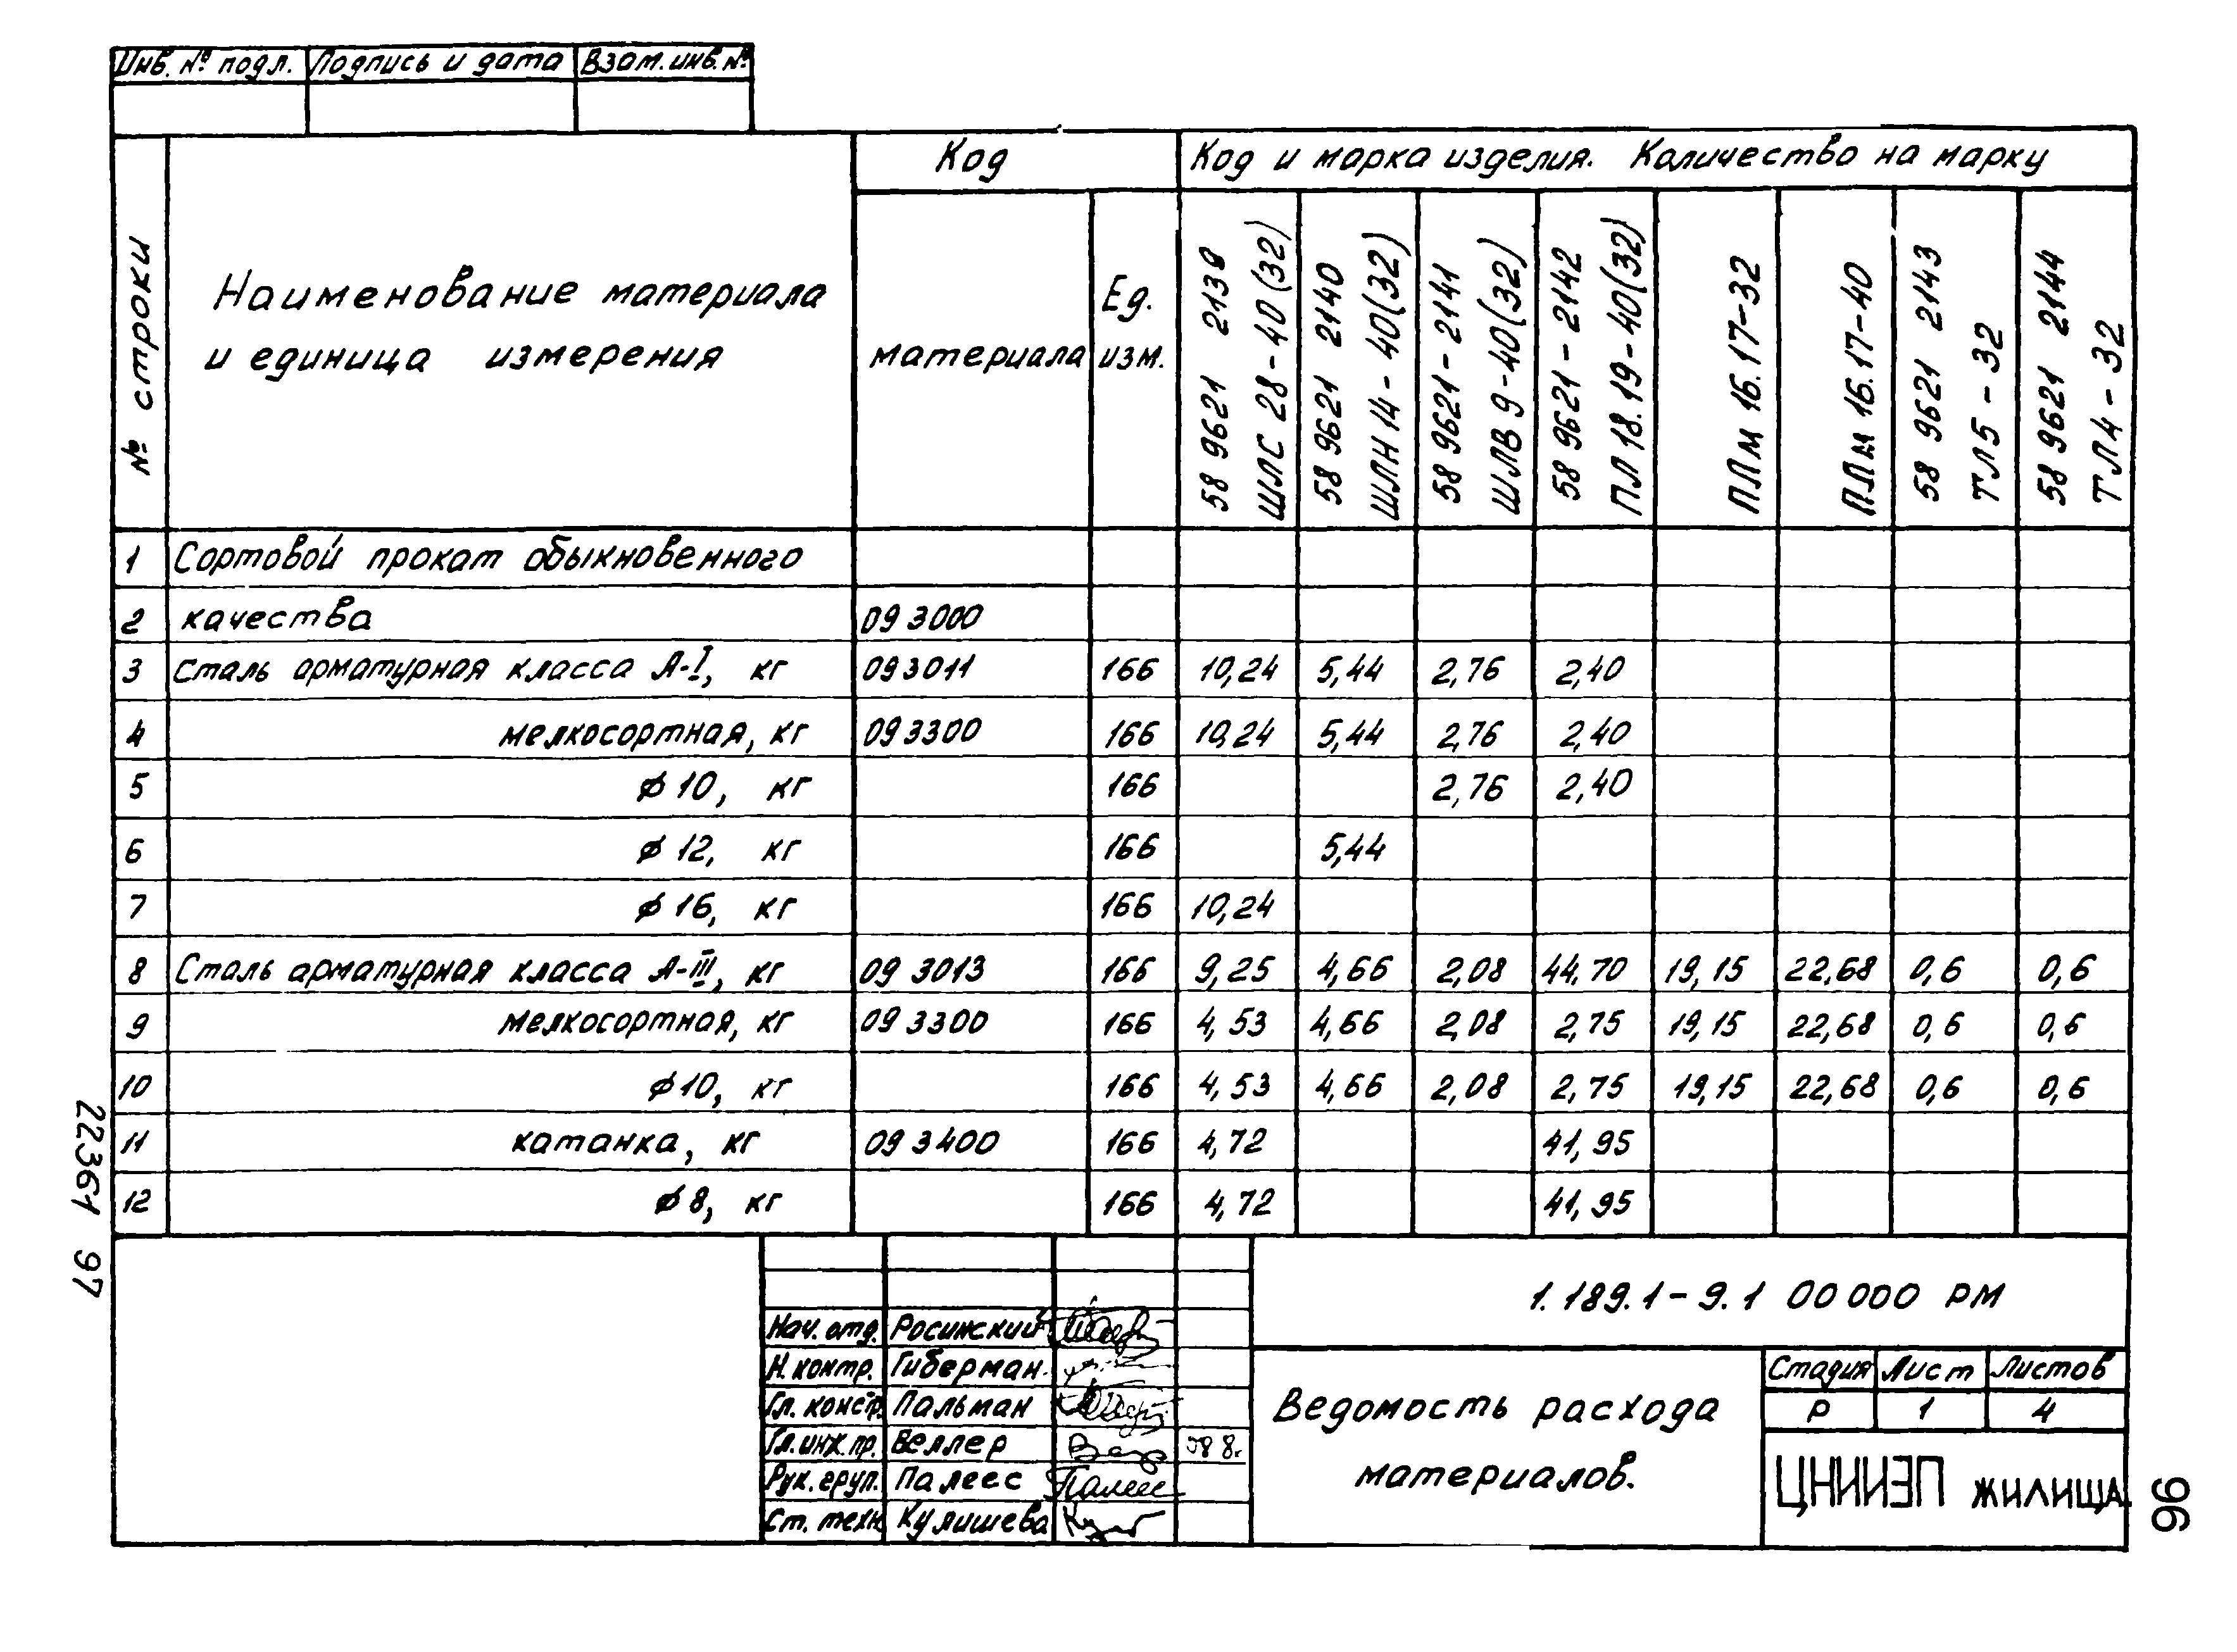 Инв. № подл. Подпись и дата Взам. инв. №
№ строки
Наименование материала
и единица измерения
Код
материала
Ед.
изм.
Код и марка изделия. Количество на марку
58 9621 2139
ШЛС 28-40 (32)
58 9621 2140
ШЛН 14-40(32)
58 9621-2141
ШЛВ 9-40(32)
58 9621-2142
ПЛ 18.19-40(32)
ПЛм 16.17-32
ПЛм 16.17-40
58 9621 2143
ТЛ5-32
58 9621 2144
ТЛ4-32
1 Сортовой прокат обыкновенного
2 качества 09 3000
3 Сталь арматурная класса А-I, кг 093011 166 10,24 5,44 2,76 2,40
4 мелкосортная, кг 093300 166 10,24 5,44 2,76 2,40
5 ø 10, кг 166 2,76 2,40
6 ø 12, кг 166 5,44
7 ø 16, кг 166 10,24
8 Сталь арматурная класса А-III, кг 09 3013 166 9,25 4,66 2,08 44,70 19,15 22,68 0,6 0,6
9 мелкосортная, кг 09 3300 166 4,53 4,66 2,08 2,75 19,15 22,68 0,6 0,6
10 ø 10, кг 166 4,53 4,66 2,08 2,75 19,15 22,68 0,6 0,6
11 катанка, кг 09 3400 166 4,72 41,95
12 ø 8, кг 166 4,72 41,95
22361 97
1.189.1-9.1 00 000 РМ
Нач. отд. Росинский
Н. контр. Гиберман.
Гл. констр. Пальман
Гл. инж. пр. Веллер
Рук. груп. Палеес Палеес
Ст. техн. Кулишева
Ведомость расхода
материалов.
Стадия Лист Листов
Р 1 4
ЦНИИЭП жилища
96